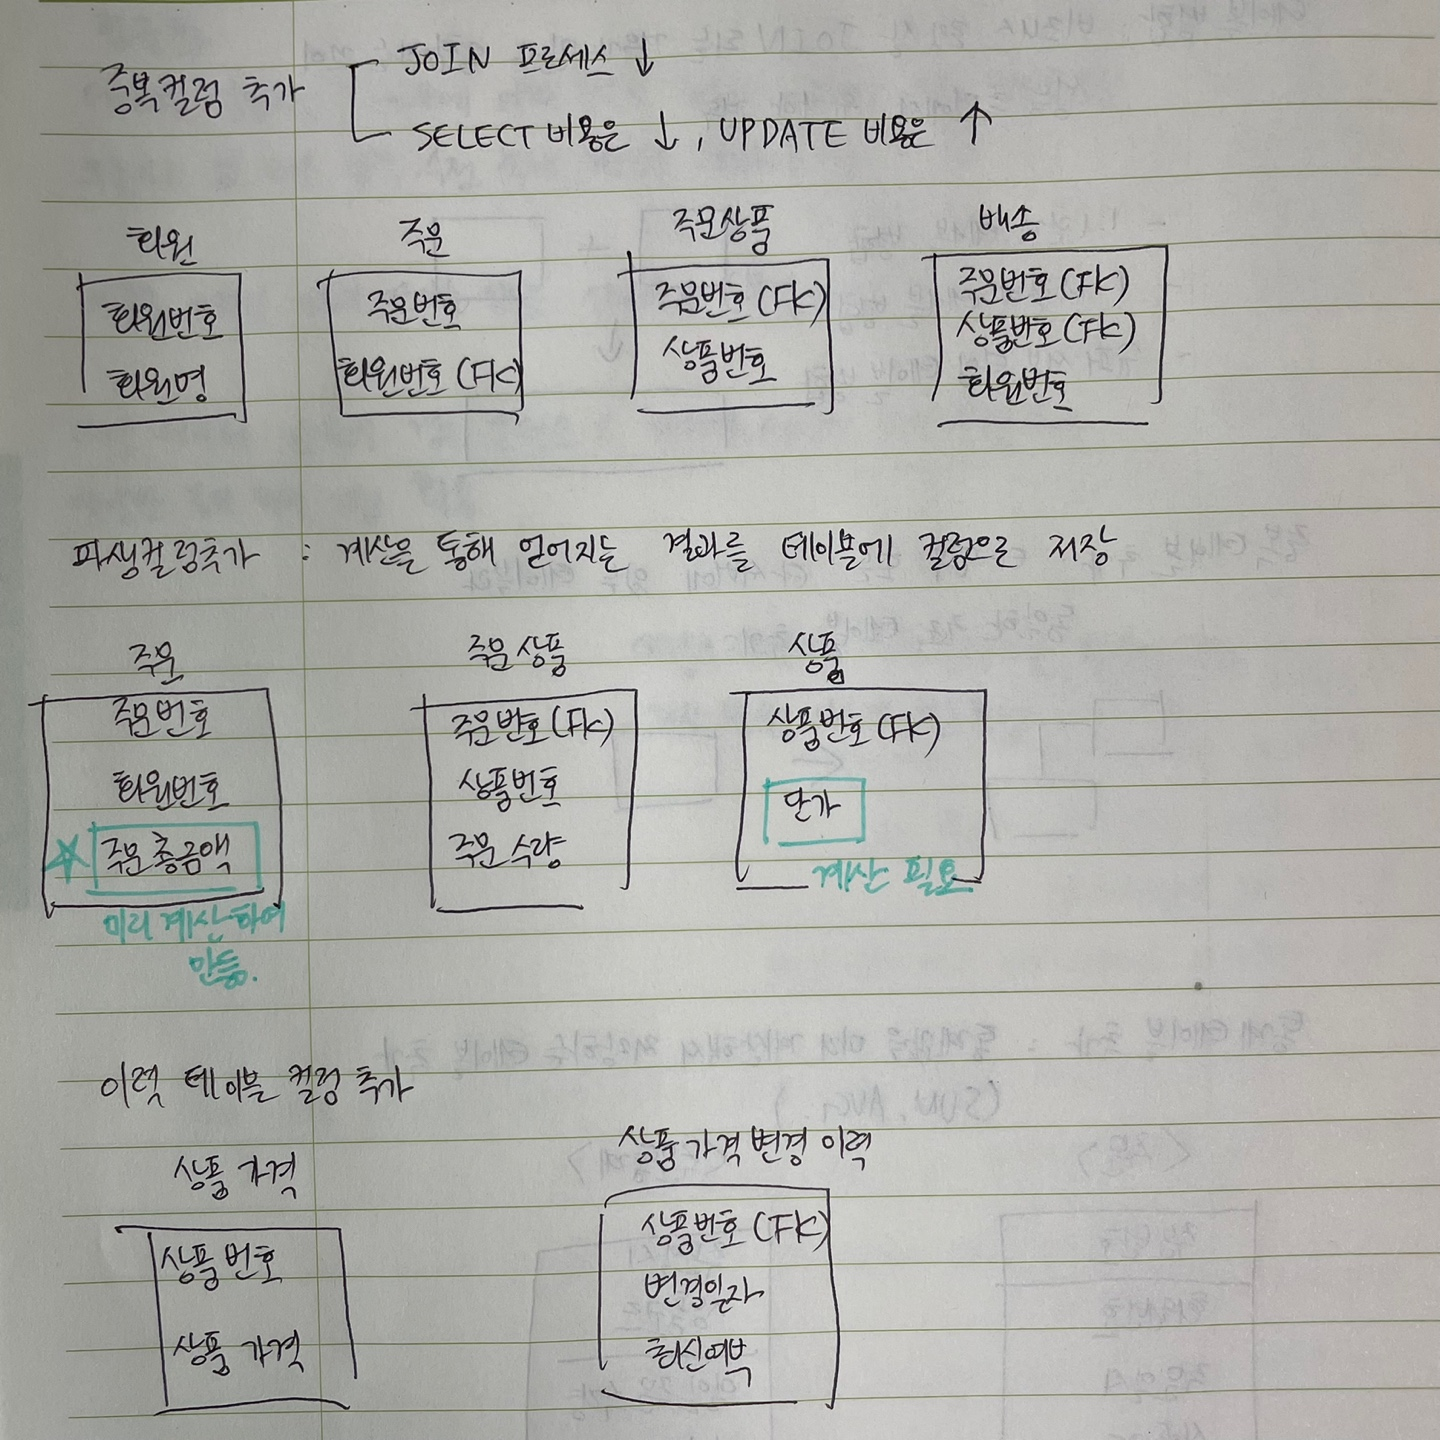 중복컬럼 추가
JOIN 프로세스 ↓
SELECT 비용은 ↓, UPDATE 비용은 ↑
회원
회원번호
회원명
주문
주문번호
회원번호 (FK)
주문상품
주문번호 (FK)
상품번호
배송
주문번호 (FK)
상품번호 (FK)
회원번호
파생컬럼추가 : 계산을 통해 얻어지는 결과를 테이블에 컬럼으로 저장
주문
주문번호
회원번호
주문 총금액
미리 계산하여
만듬.
주문 상품
주문번호 (FK)
상품번호
주문 수량
상품
상품번호 (FK)
단가
계산 필요
이력 테이블 컬럼 추가
상품 가격
상품 번호
상품 가격
상품 가격 변경 이력
상품번호 (FK)
변경일자
최신여부